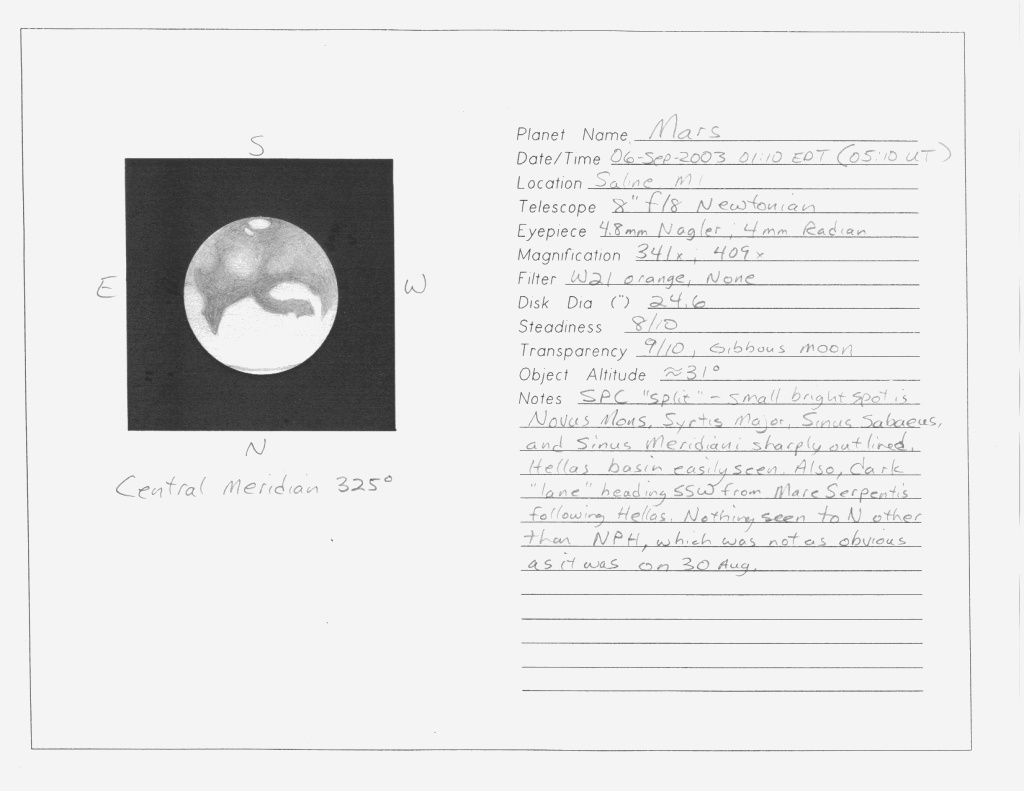 S
E
W
N
Central Meridian 325°
Planet Name Mars
Date/Time 06-Sep-2003 01:10 EDT (05:10 UT)
Location Saline MI
Telescope 8" f/8 Newtonian
Eyepiece 4.8mm Nagler, 4mm Radian
Magnification 341x, 409x
Filter W21 orange, None
Disk Dia (") 24.6
Steadiness 8/10
Transparency 9/10, Gibbous moon
Object Altitude ≈31°
Notes SPC "split" - small bright spot is
Novus Mons, Syrtis Major, Sinus Sabaeus,
and Sinus Meridiani sharply outlined.
Hellas basin easily seen. Also, dark
"lane" heading SSW from Mare Serpentis
following Hellas. Nothing seen to N other
than NPH, which was not as obvious
as it was on 30 Aug.